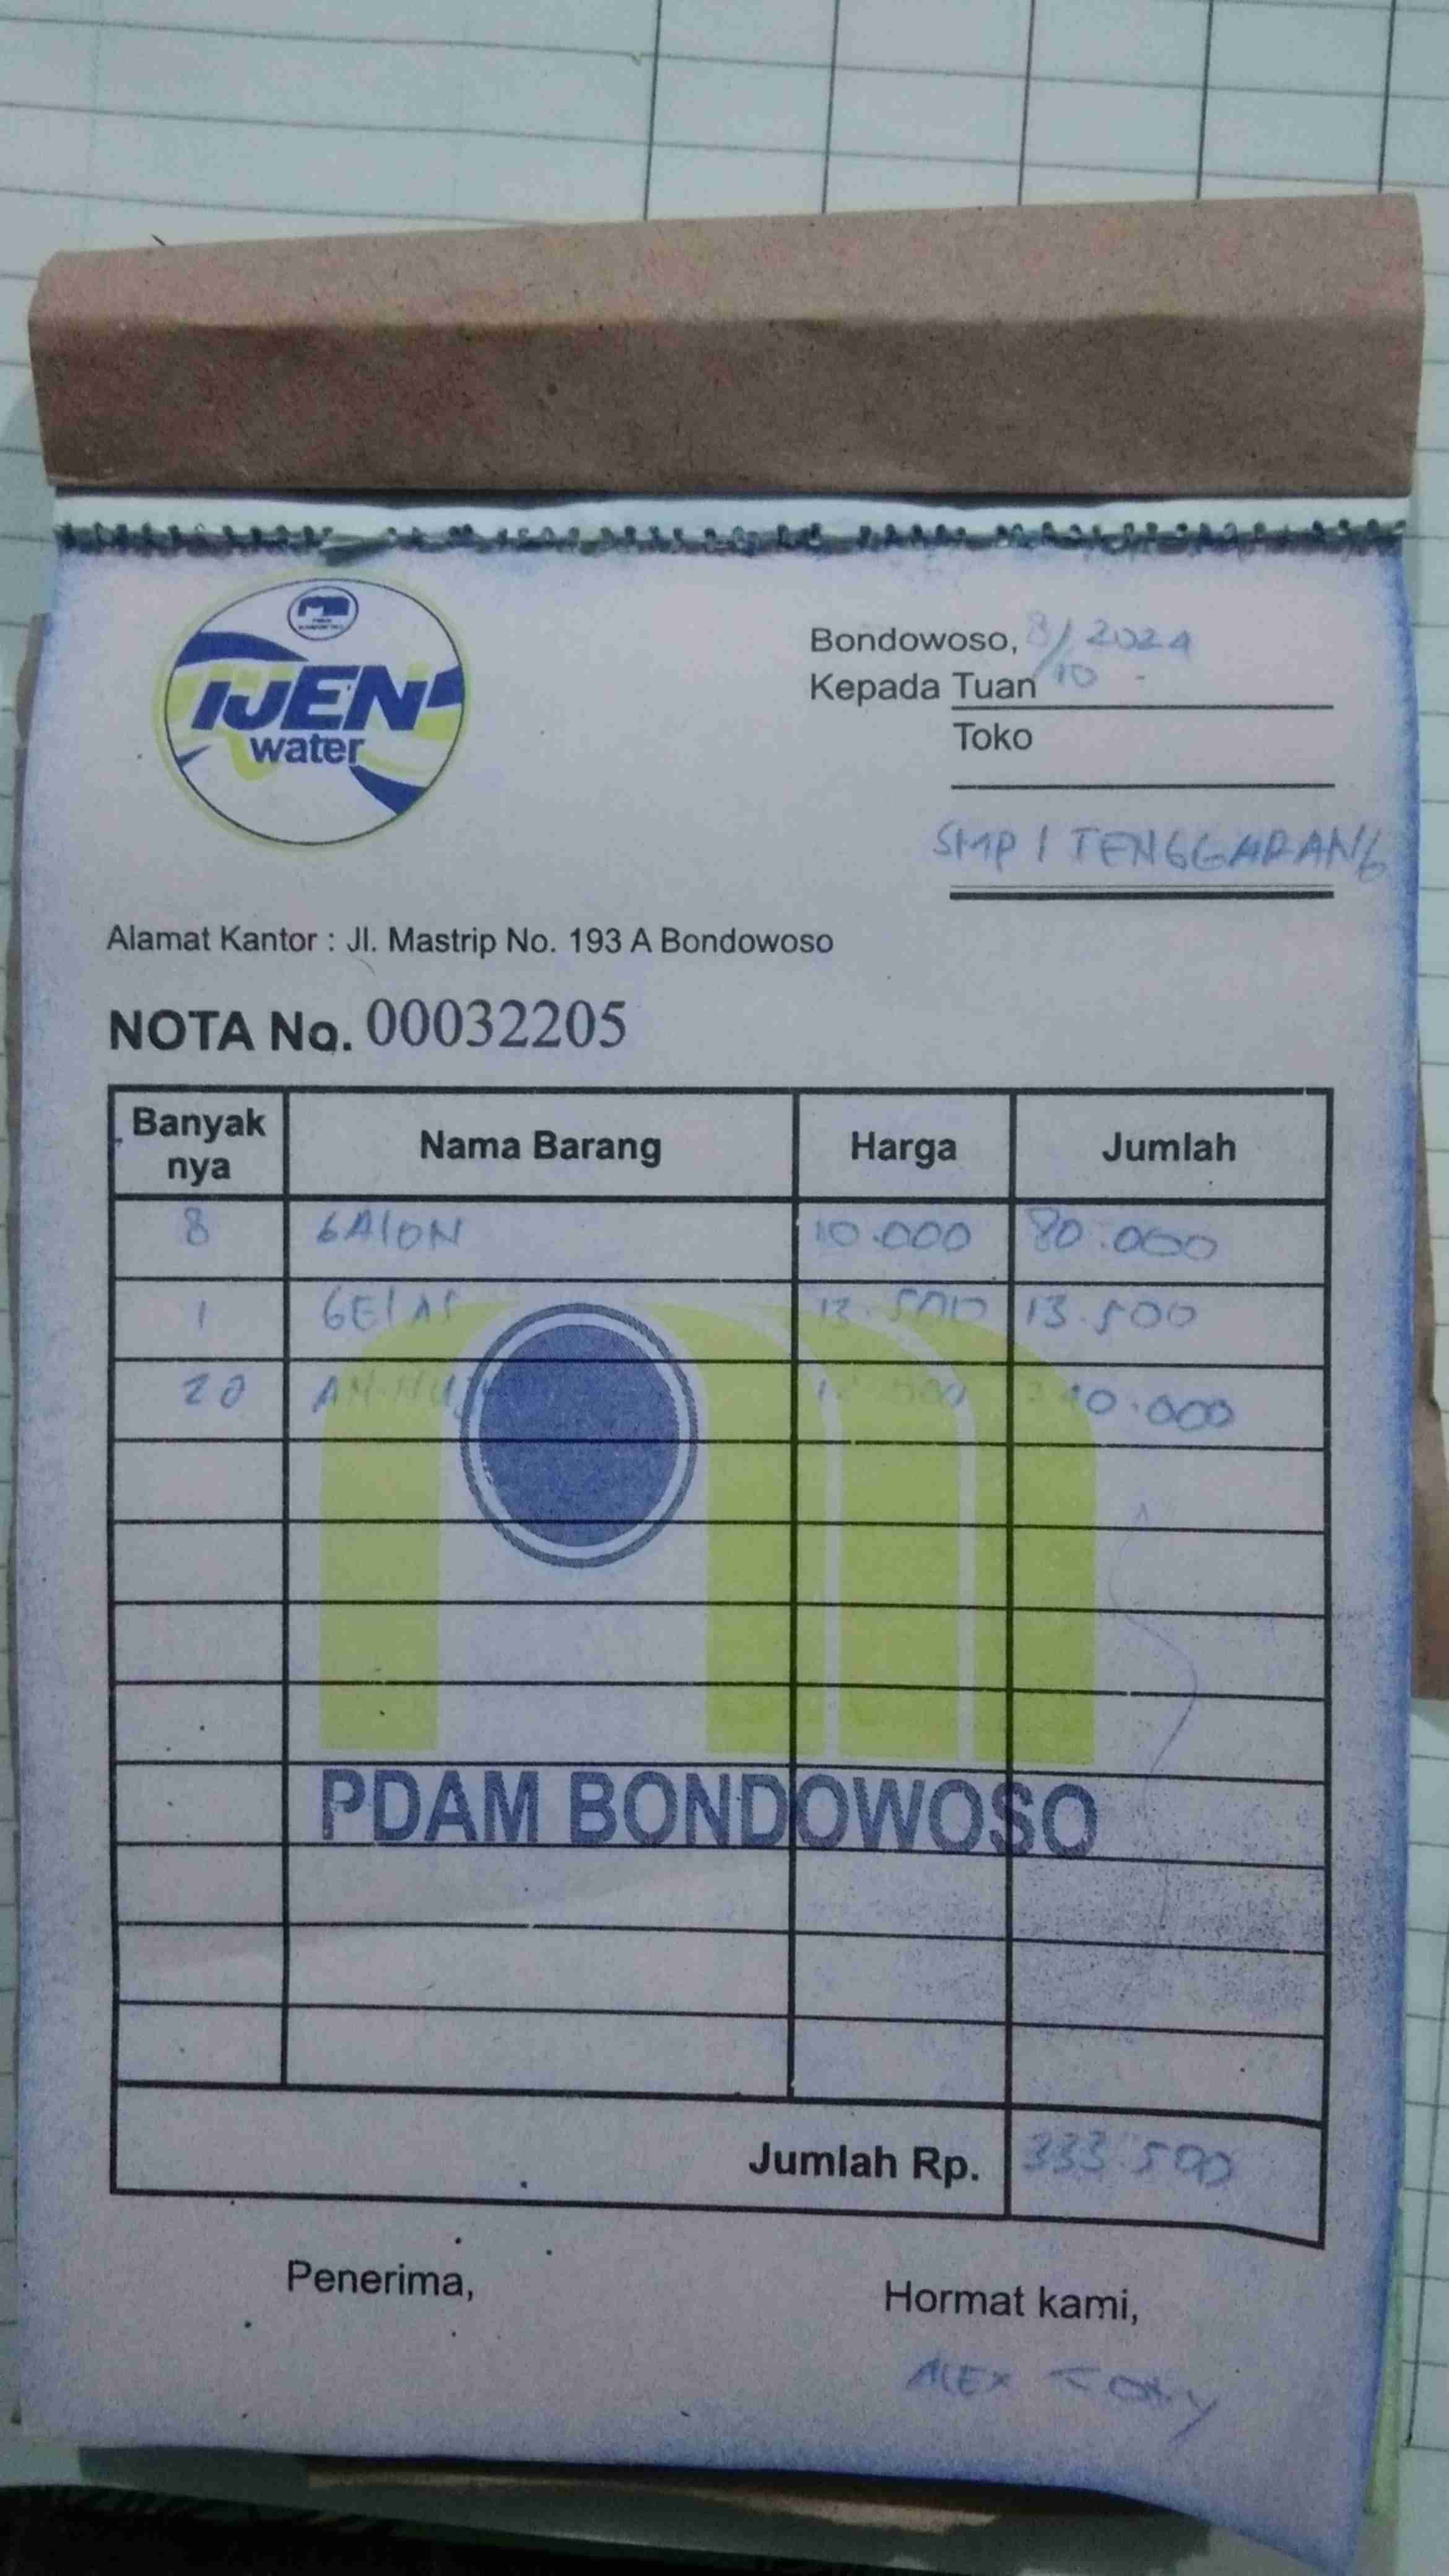 IJEN
water
Bondowoso, 8/10 2024
Kepada Tuan
Toko
SMP 1 TENGGARANG
Alamat Kantor : Jl. Mastrip No. 193 A Bondowoso
NOTA No. 00032205
Banyak nya Nama Barang Harga Jumlah
8 GALON 10.000 80.000
1 GELAS 13.500 13.500
20 240.000
PDAM BONDOWOSO
Jumlah Rp. 333.500
Penerima,
Hormat kami,
ALEX